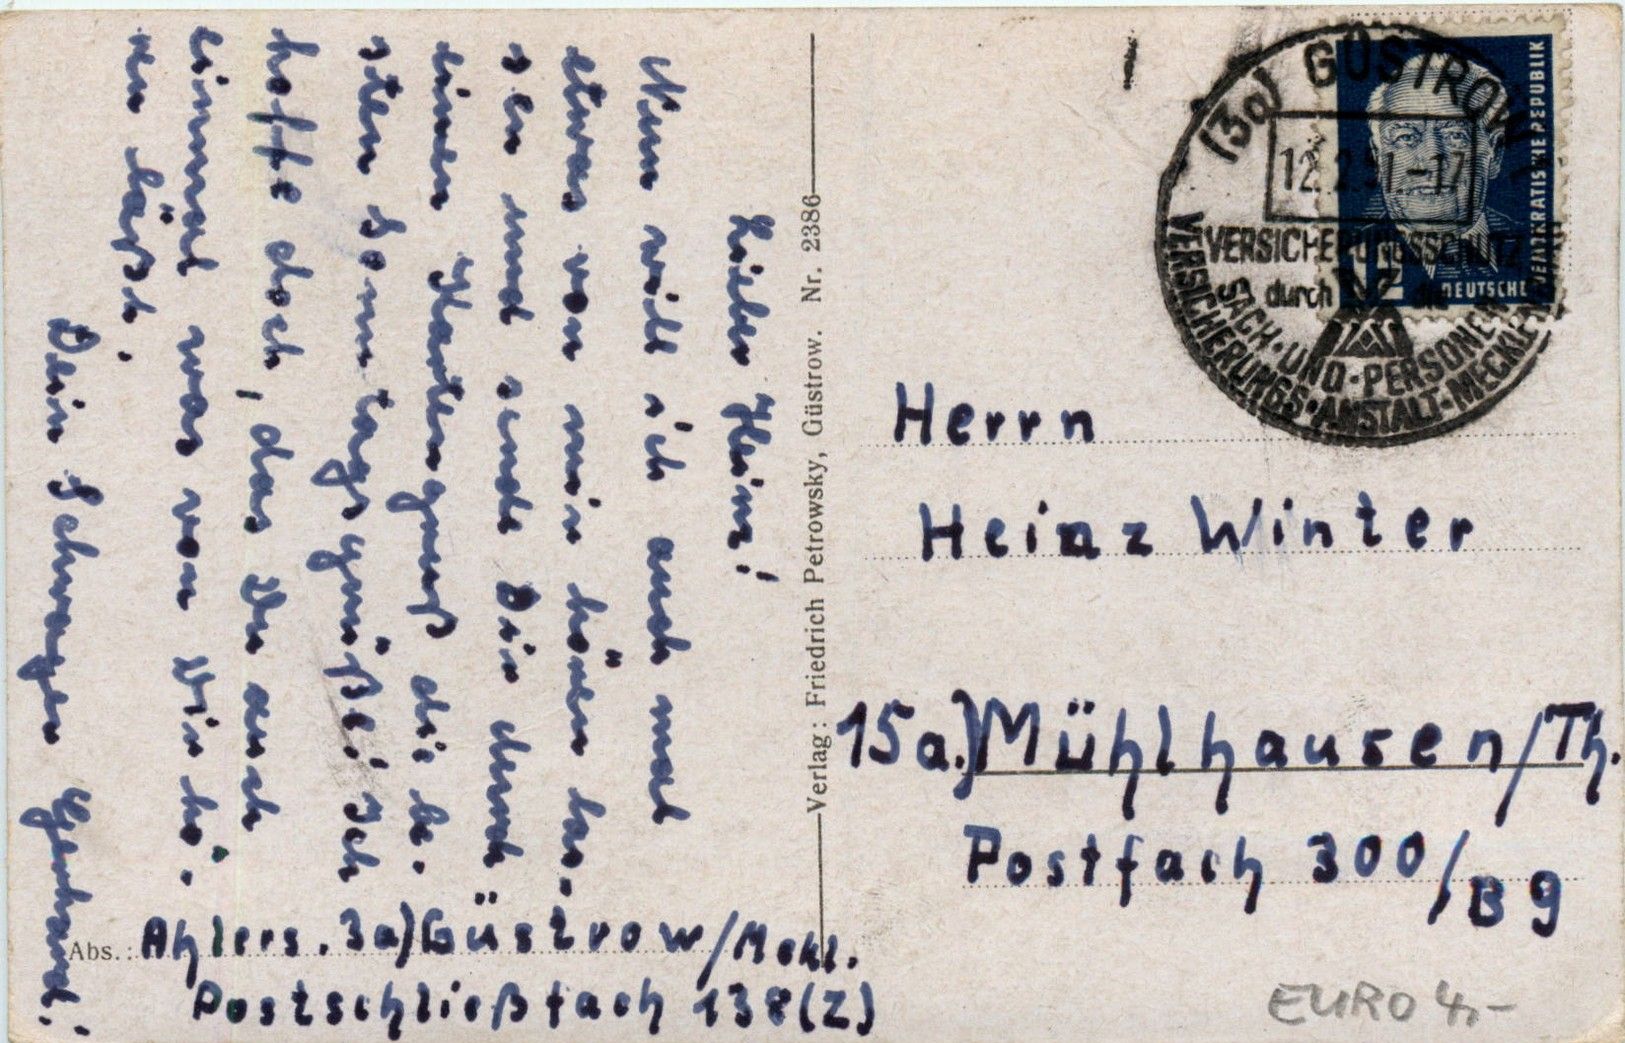 Lieber Heinz!
Nun will ich auch mal
etwas von mir hören las-
sen und sende Dir durch
einen Kartengruß die be-
sten Sonntagsgrüße! Ich
hoffe doch, das Du auch
einmal was von Dir hö-
ren läßt.
Dein Schwager Gerhard!
Abs.: Ahlers. 3a) Güstrow/Mekl.
Postschließfach 138(Z)
Verlag: Friedrich Petrowsky, Güstrow. Nr. 2386
(3a) GÜSTROW
12.2.51.-17
VERSICHERUNGSSCHUTZ
durch die
SACH-UND-PERSONEN
VERSICHERUNGS-ANSTALT-MECKL
DEUTSCHE
DEMOKRATISCHE REPUBLIK
12
Herrn
Heinz Winter
15a.) Mühlhausen/Th.
Postfach 300/B9
EURO 4,-